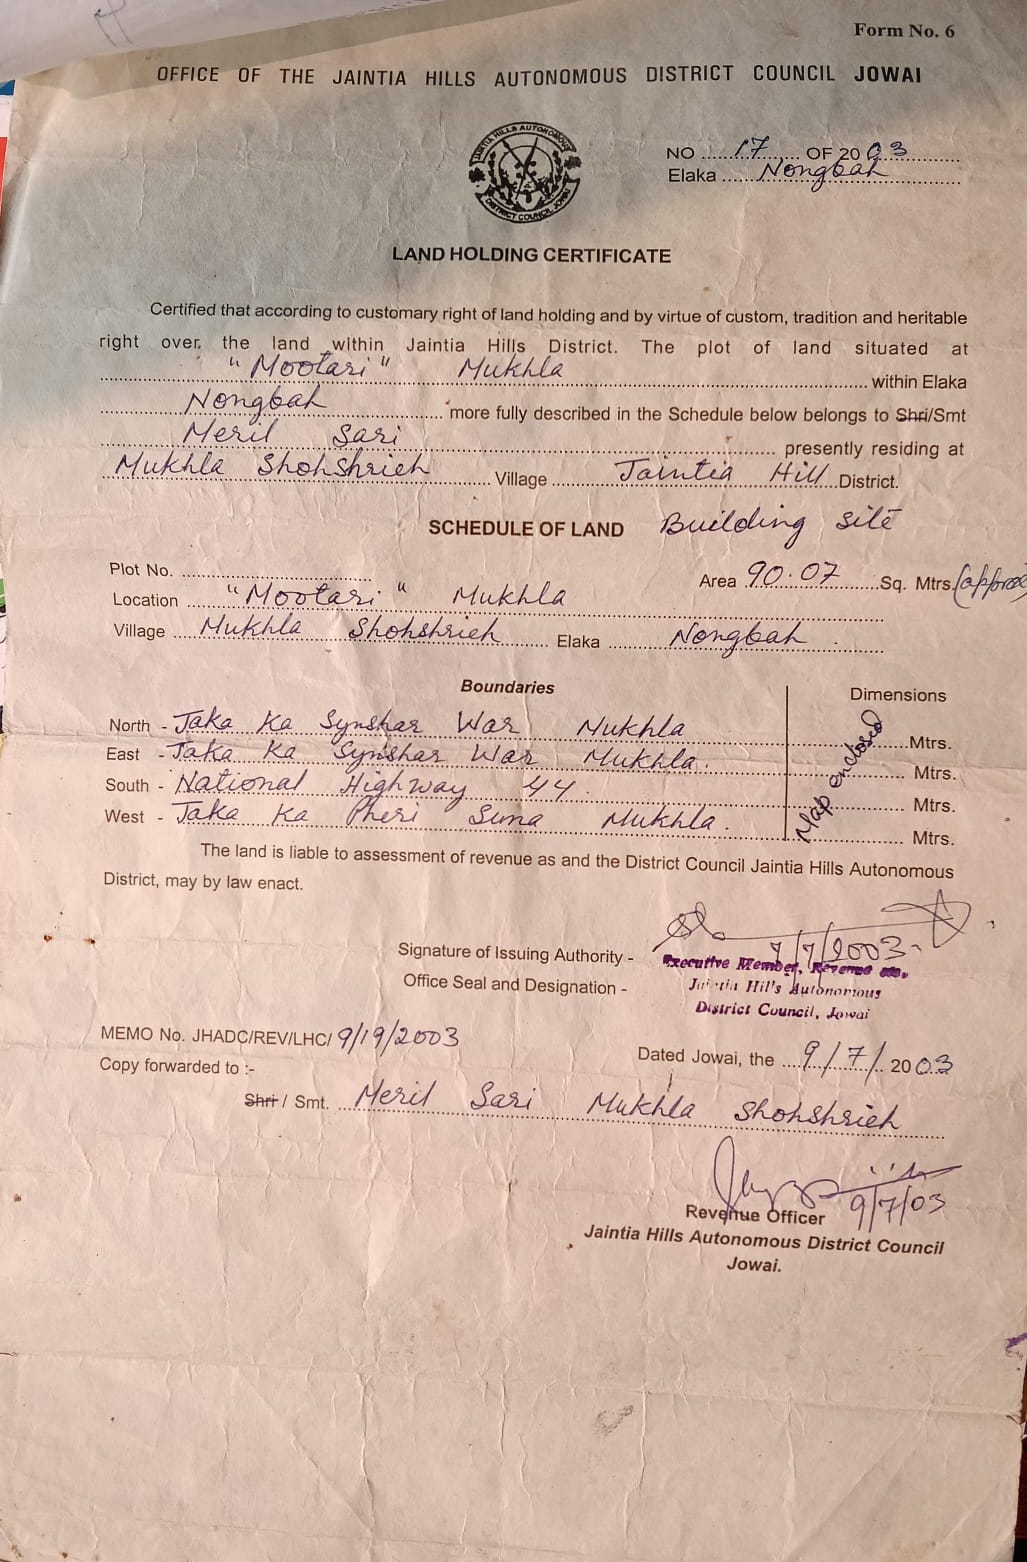 Form No. 6
OFFICE OF THE JAINTIA HILLS AUTONOMOUS DISTRICT COUNCIL JOWAI
JAINTIA HILLS AUTONOMOUS
DISTRICT COUNCIL JOWAI
NO ......17....... OF 2003
Elaka ..... Nongbah
LAND HOLDING CERTIFICATE
Certified that according to customary right of land holding and by virtue of custom, tradition and heritable
right over, the land within Jaintia Hills District. The plot of land situated at
"Mootari" Mukhla within Elaka
Nongbah more fully described in the Schedule below belongs to Shri/Smt
Meril Sari presently residing at
Mukhla Shohshrieh Village Jaintia Hill District.
SCHEDULE OF LAND Building site
Plot No. ........................ Area 90.07 Sq. Mtrs. (approx
Location "Mootari" Mukhla
Village Mukhla Shohshrieh Elaka Nongbah
Boundaries Dimensions
North - Jaka Ka Synshar War Mukhla Mtrs.
East - Jaka Ka Synshar War Mukhla. Mtrs.
South - National Highway 44. Mtrs.
West - Jaka Ka Pheri Mukhla. Mtrs.
Map enclosed
The land is liable to assessment of revenue as and the District Council Jaintia Hills Autonomous
District, may by law enact.
7/7/2003.
Signature of Issuing Authority - Executive Member, Revenue etc.
Office Seal and Designation - Jaintia Hill's Autonomous
District Council, Jowai
MEMO No. JHADC/REV/LHC/ 9/19/2003
Dated Jowai, the .... 9/7/. 2003
Copy forwarded to :-
Shri / Smt. Meril Sari Mukhla Shohshrieh
9/7/03
Revenue Officer
Jaintia Hills Autonomous District Council
Jowai.